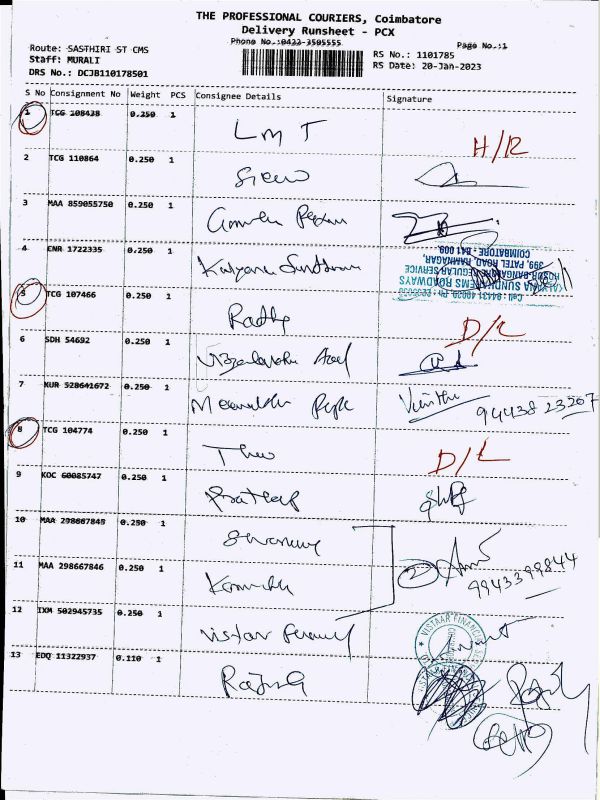 THE PROFESSIONAL COURIERS, Coimbatore
Delivery Runsheet - PCX
Phone No.:0422-3505555
Page No.:1
Route: SASTHIRI ST CMS
Staff: MURALI
DRS No.: DCJB110178501
RS No.: 1101785
RS Date: 20-Jan-2023
S No Consignment No Weight PCS Consignee Details Signature
1 TCG 108438 0.250 1 LMT H/R
2 TCG 110864 0.250 1
3 MAA 859055750 0.250 1
4 ENR 1722335 0.250 1 Kalyani Sundaram
KALYANI SUNDARAMS ROADWAYS
HOSUR-BANGALORE REGULAR SERVICE
399, PATEL ROAD, RAMNAGAR,
COIMBATORE - 641 009.
5 TCG 107466 0.250 1 Radha D/L
6 SDH 54692 0.250 1
7 KUR 528641672 0.250 1 Meenakshi 94438 23207
8 TCG 104774 0.250 1 D/L
9 KOC 60085747 0.250 1 Pratheep
10 MAA 298667845 0.250 1
11 MAA 298667846 0.250 1 2 9943399844
12 IXM 502945735 0.250 1 Vistaar
VISTAAR FINANCIAL
13 EDQ 11322937 0.110 1